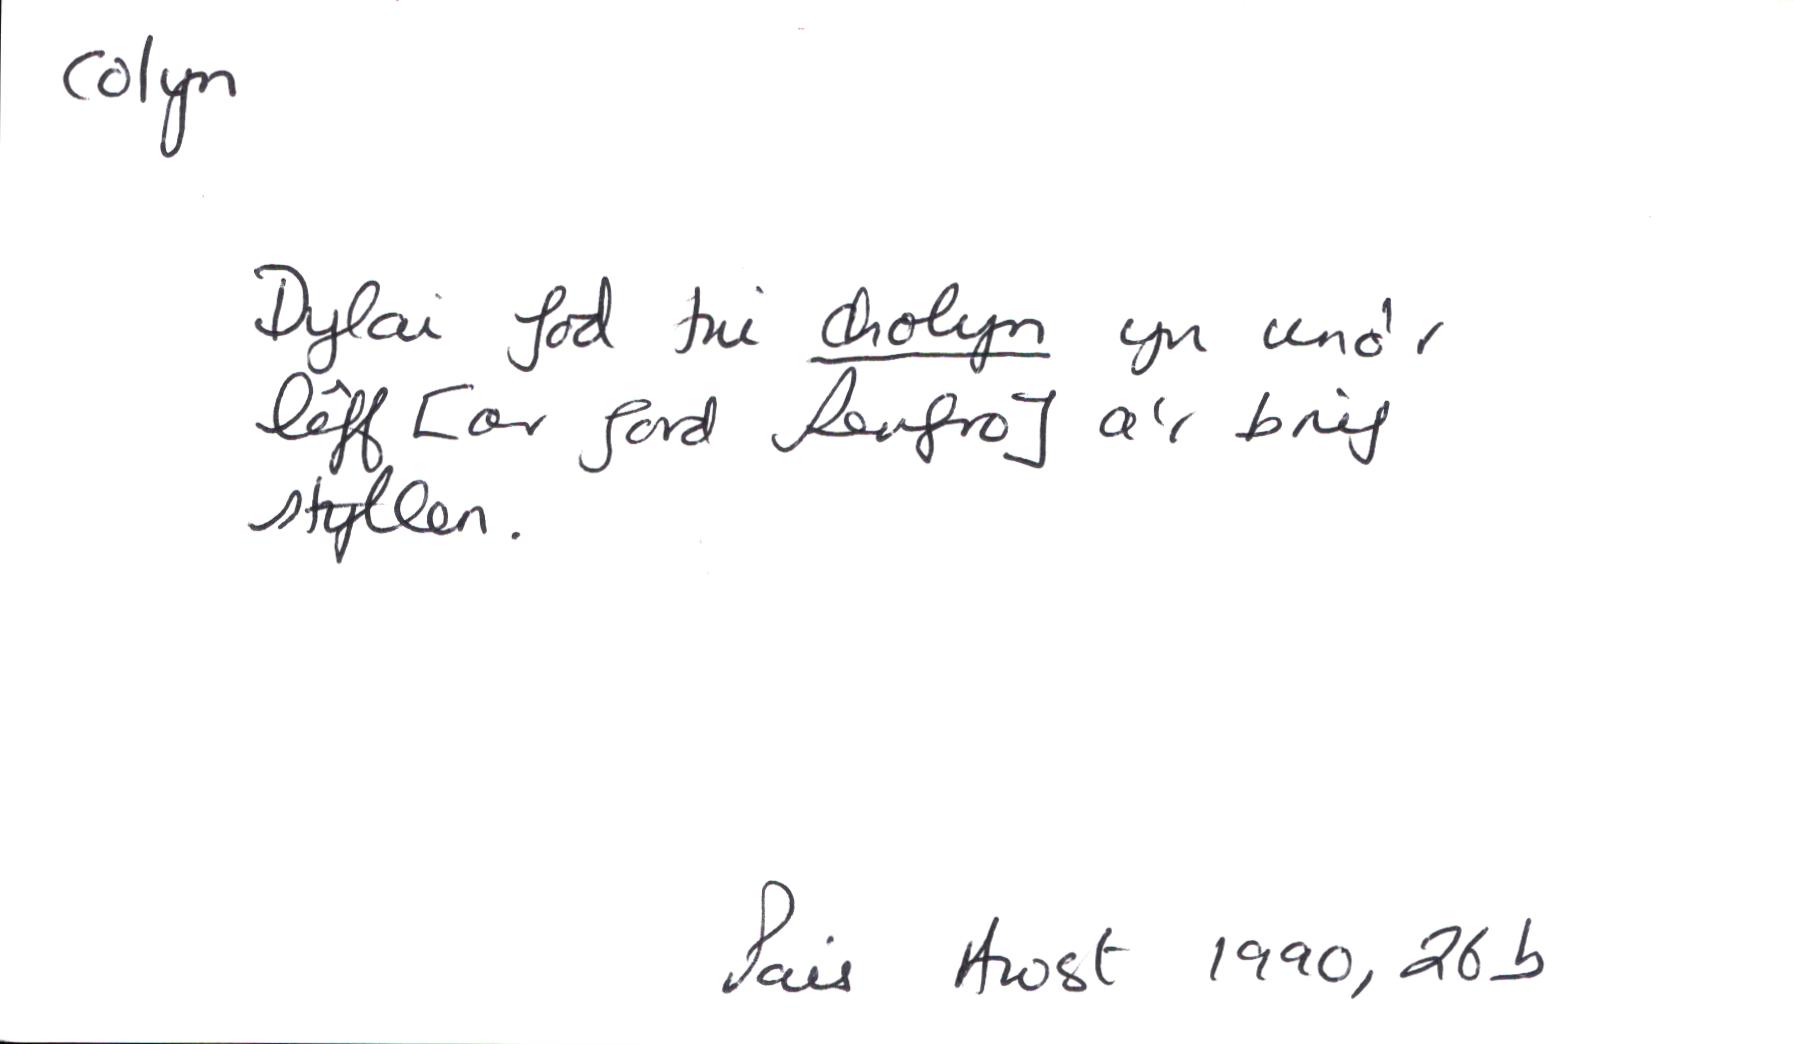 colyn
Dylai fod tri cholyn yn uno'r
lêff [ar ford Penfro] a'r brig
styllen.
Pais Awst 1990, 26b